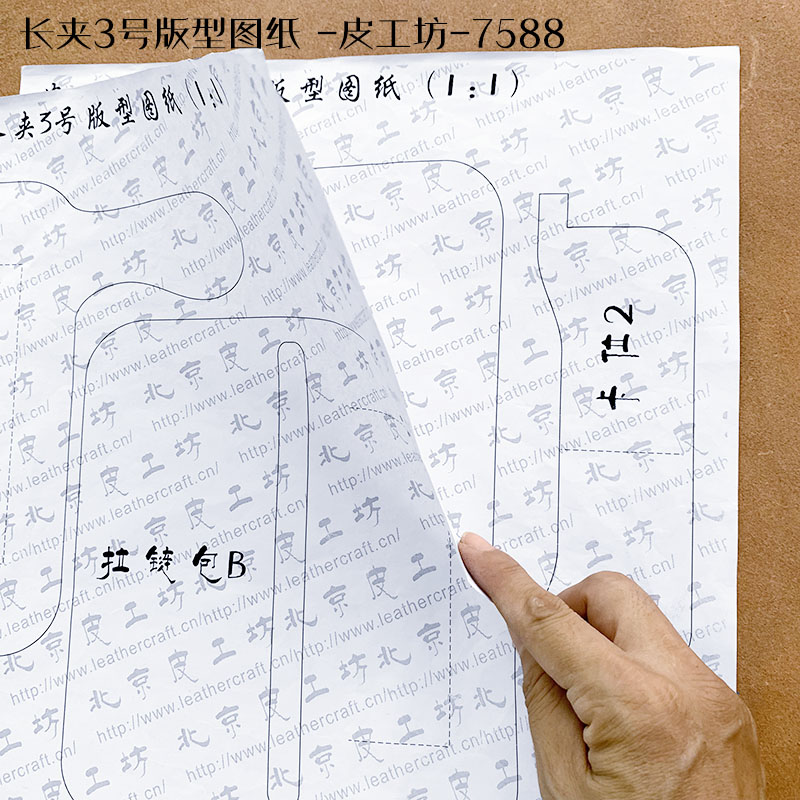 长夹3号版型图纸 -皮工坊-7588
版型图纸（1:1）
夹3号版型图纸（1:1）
卡位2
拉链包B
北京皮工坊
http://www.leathercraft.cn/